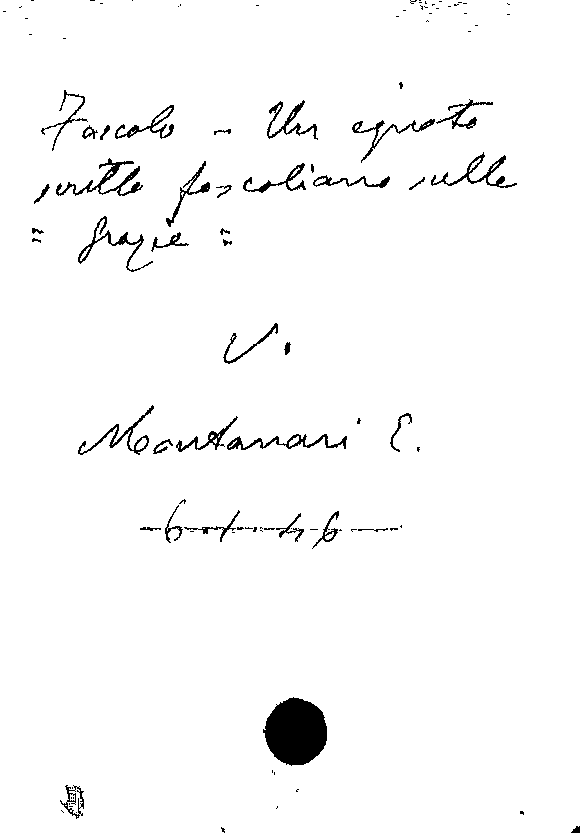 Foscolo - Un ignoto
scritto foscoliano sulle
= Grazie =
V.
Montanari E.